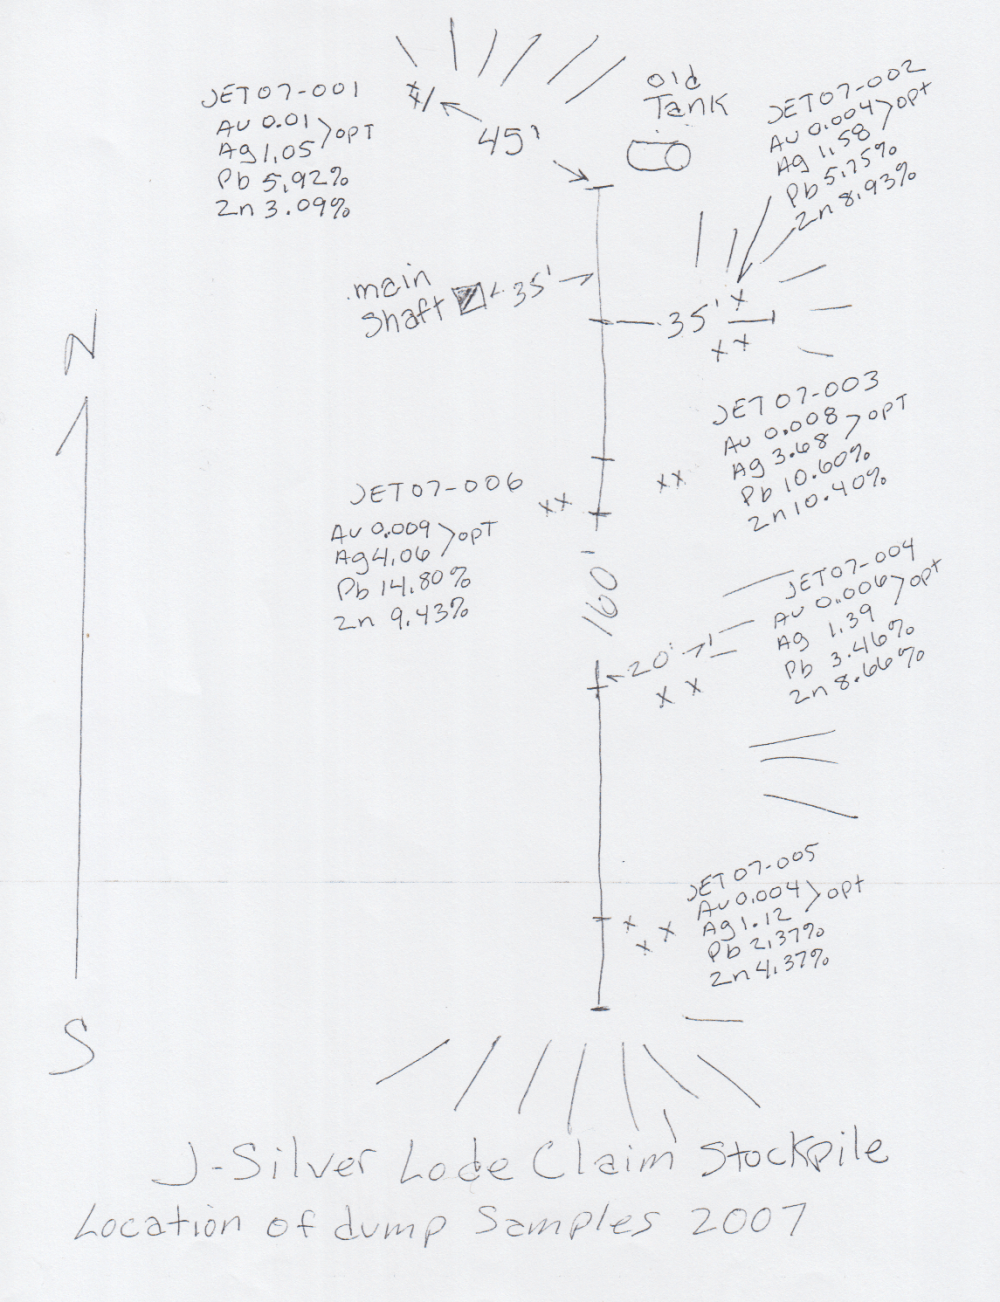 JET07-001
Au 0.01 >opT
Ag 1.05
Pb 5.92%
Zn 3.09%
45'
old
Tank
JET07-002
Au 0.004 >opt
Ag 1.58
Pb 5.75%
Zn 8.93%
main
Shaft
35'
35'
N
JET07-003
Au 0.008 >opT
Ag 3.68
Pb 10.60%
Zn 10.40%
JET07-006
Au 0.009 >opT
Ag 4.06
Pb 14.80%
Zn 9.43%
160'
JET07-004
Au 0.006 >opt
Ag 1.39
Pb 3.46%
Zn 8.66%
20'
JET07-005
Au 0.004 >opt
Ag 1.12
Pb 2.37%
Zn 4.37%
S
J-Silver Lode Claim Stockpile
Location of dump Samples 2007